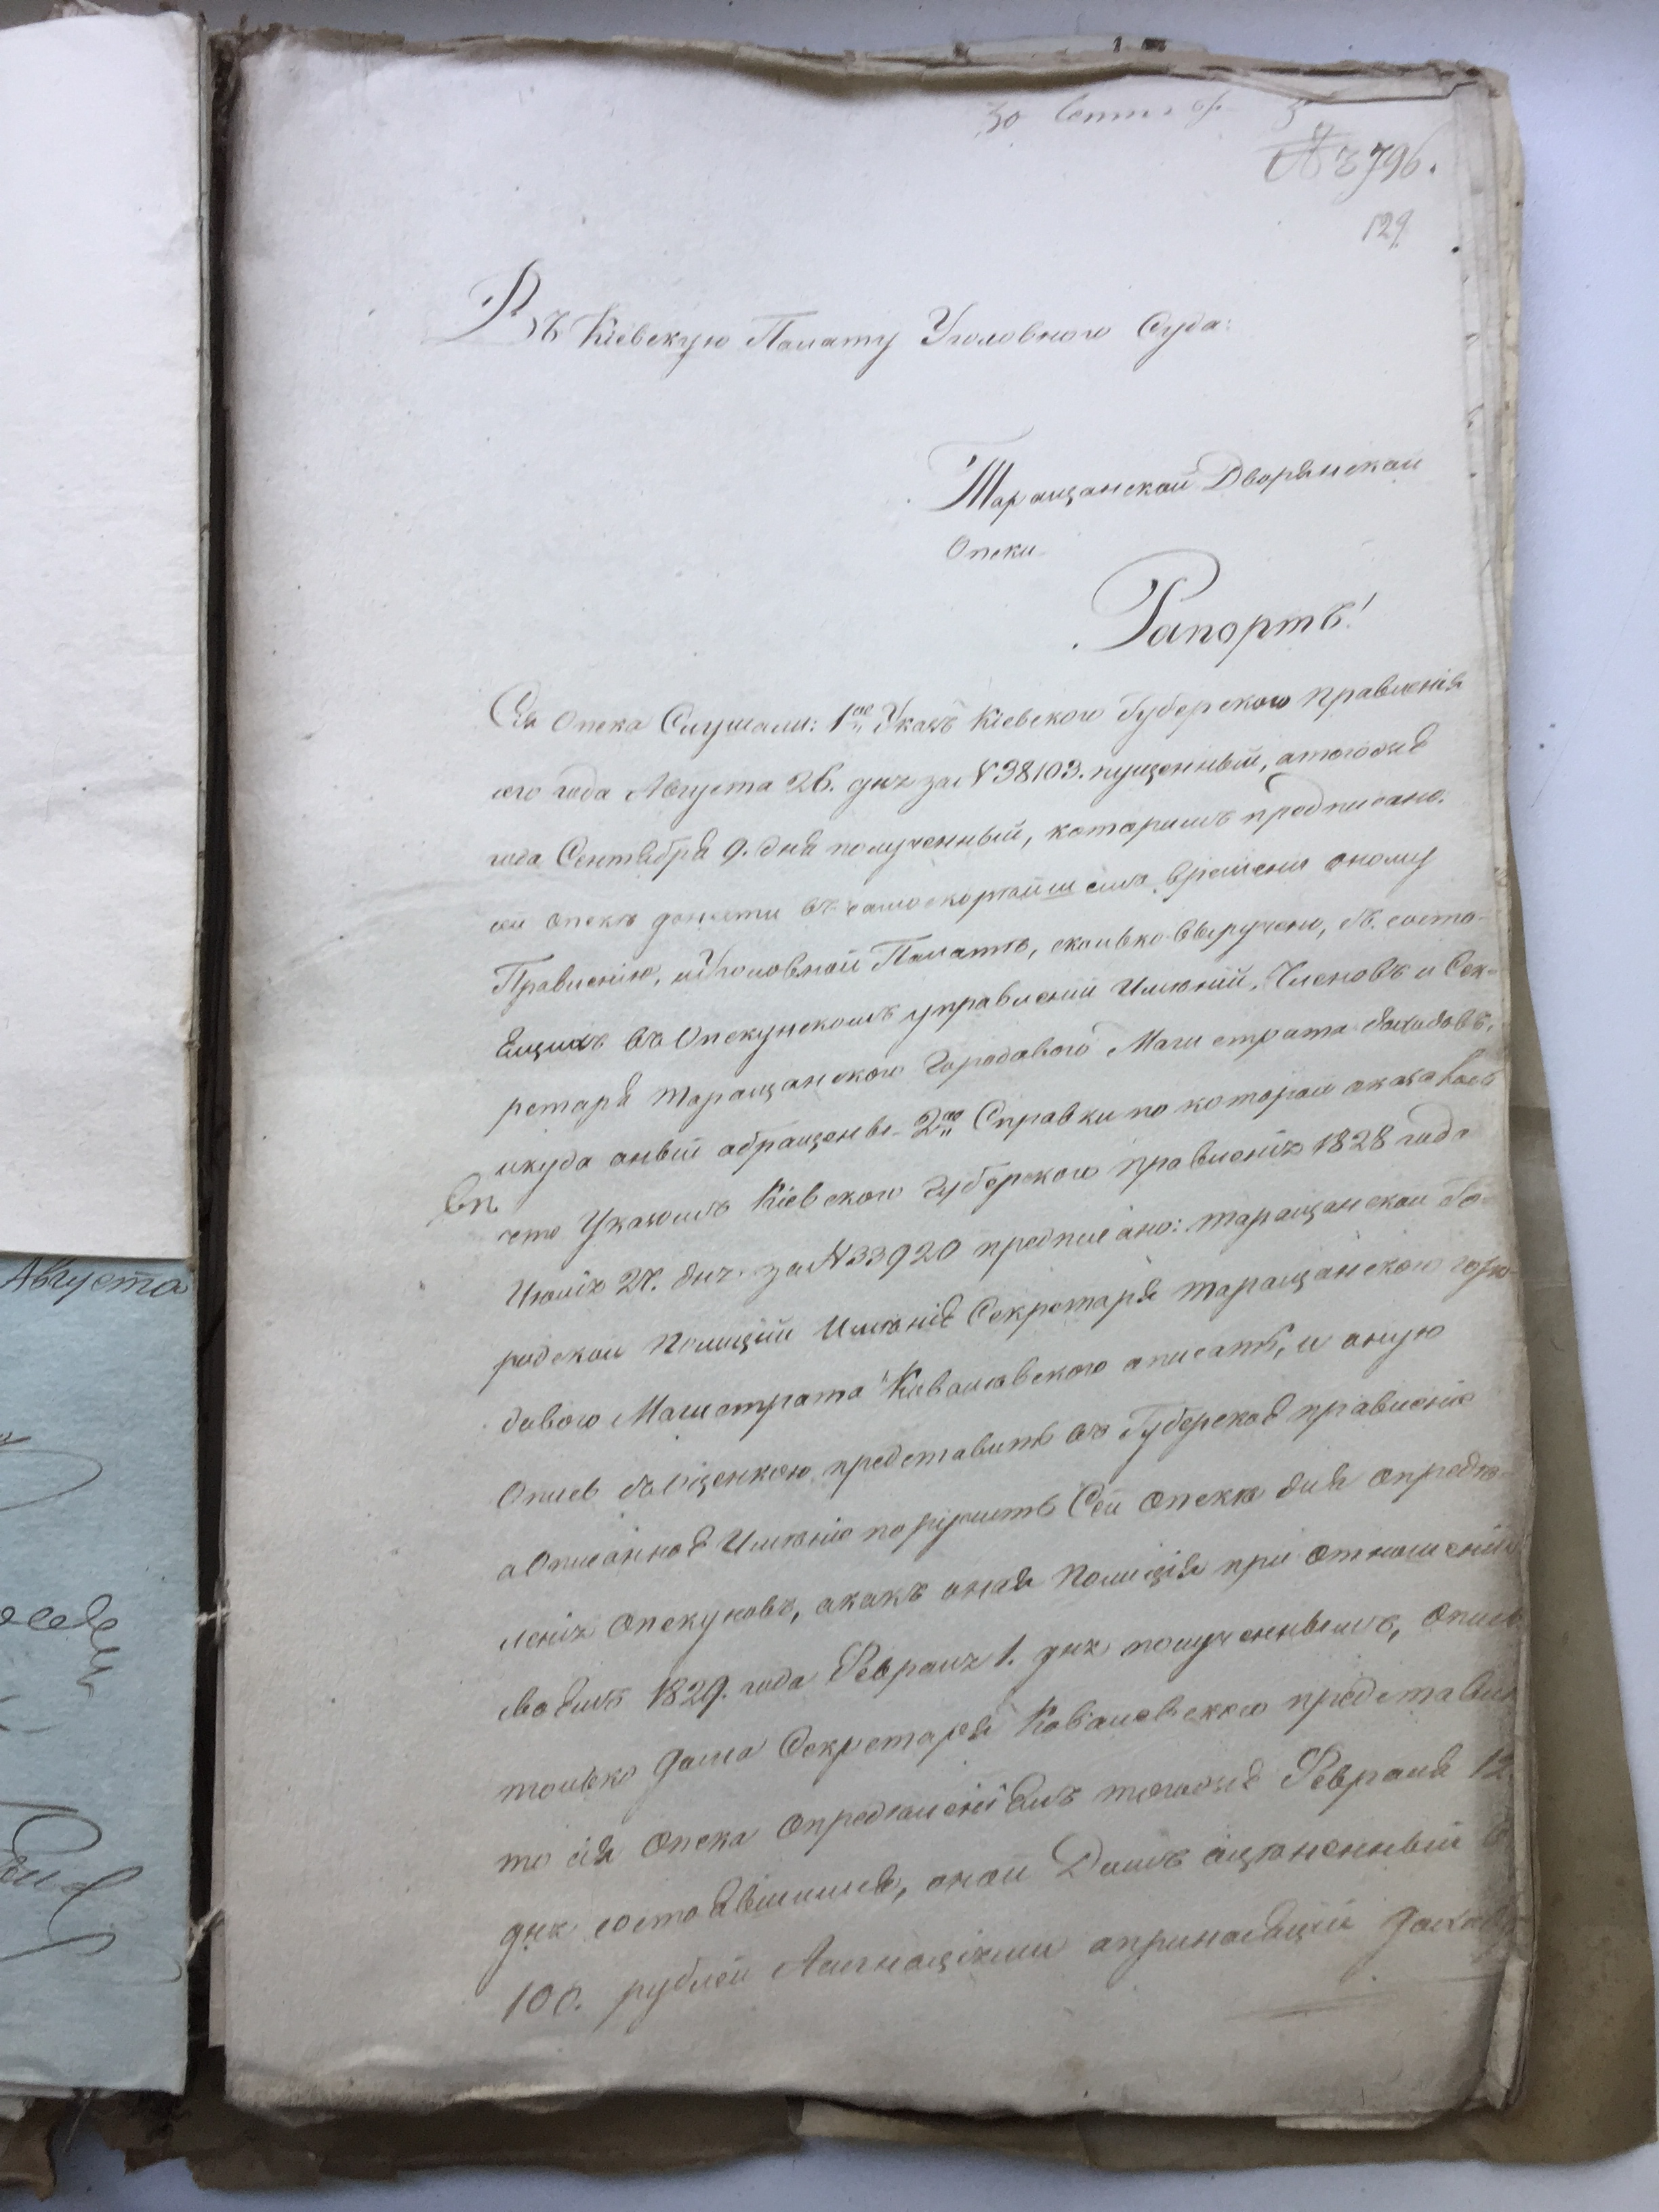 30 Сентяб.
№ 3796.
129
Въ Кіевскую Палату Уголовного Суда:
Таращанской Дворянской
Опеки
Рапортъ!
Сія Опека Слушали: 1ое Указъ Кіевского Губерского правленія
сего года Августа 26. дня за №38103. пущенный, атогожѣ
года Сентября 9. дня полученный, которимъ предписано.
сей Опекѣ донести въ самоскорѣйшемъ времени оному
Правленію, иУголовной Палатѣ, сколько выручено, съ состо-
ящихъ въ Опекунскомъ управленіи Имѣній, Членовъ и Сек-
ретаря Таращанского Городового Магистрата доходовъ,
икуда оный обращены. 2ое Справки по которой оказалось
что Указомъ Кіевского Губерского правленія 1828 года
Іюля 27. дня за №33920 предписано: таращанской Го-
родской Полиціи Имѣніе Секретаря таращанского горо-
дового Магистрата Ковалевского описать, и оную
Опись съ оценкою представить въ Губерское правленіе
аОписанное Имѣніе поручить Сей Опекѣ для опредѣ-
ленія Опекуновъ, акакъ оная Полиція при отношеніи
своемъ 1829. года Февраля 1. дня полученнымъ, Опись
только дома Секретаря Ковалевского представила
то сія Опека Опредѣленіемъ тогожѣ Февраля 12
дня состоявшимся, оной Домъ оцѣненный в
100. рублей Ассигнаціями априносящій доходу